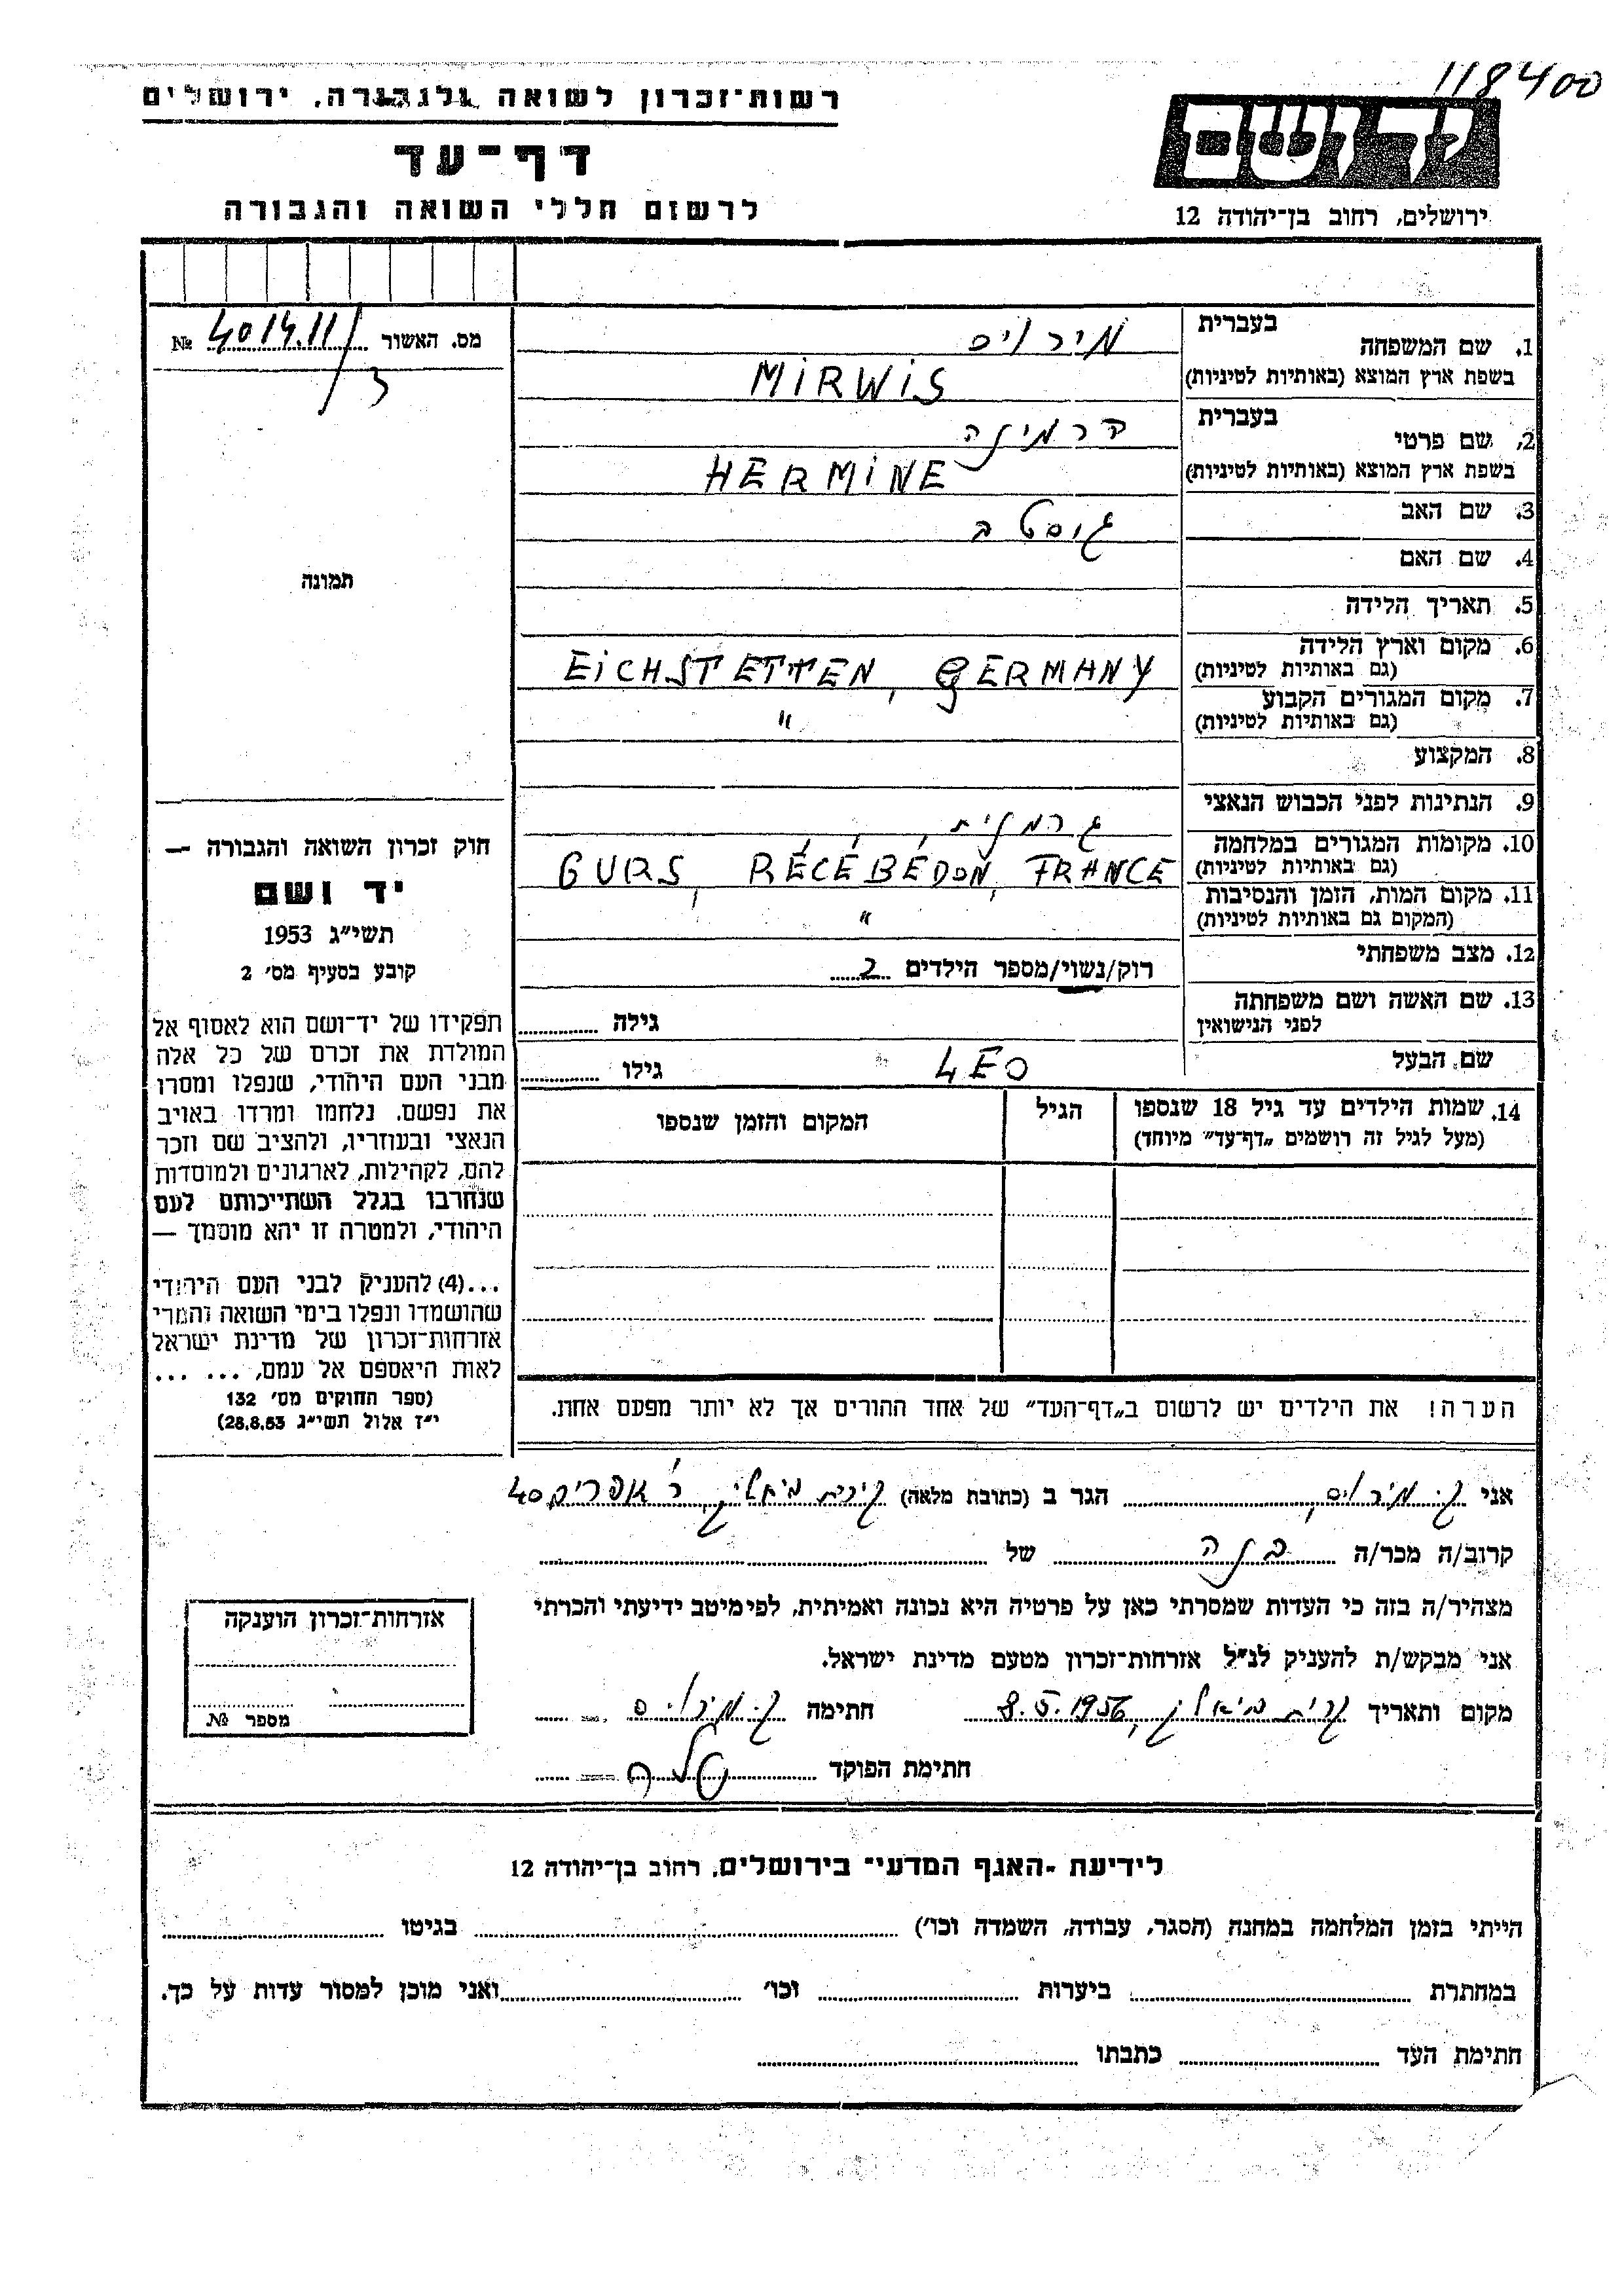 118400
רשות־זכרון לשואה ולגבורה, ירושלים
דף־עד
לרשום חללי השואה והגבורה
יד ושם
ירושלים, רחוב בן־יהודה 12
מס. האשור 4014.11/3 №
תמונה
חוק זכרון השואה והגבורה —
יד ושם
תשי״ג 1953
קובע בסעיף מס׳ 2
תפקידו של יד־ושם הוא לאסוף אל
המולדת את זכרם של כל אלה
מבני העם היהודי, שנפלו ומסרו
את נפשם, נלחמו ומרדו באויב
הנאצי ובעוזריו, ולהציב שם וזכר
להם, לקהילות, לארגונים ולמוסדות
שנחרבו בגלל השתייכותם לעם
היהודי, ולמטרה זו יהא מוסמך —
...(4) להעניק לבני העם היהודי
שהושמדו ונפלו בימי השואה והמרי
אזרחות־זכרון של מדינת ישראל
לאות היאספם אל עמם, ... ...
(ספר החוקים מס׳ 132
י״ז אלול תשי״ג 28.8.53)
בעברית
1. שם המשפחה מירויס
בשפת ארץ המוצא (באותיות לטיניות) MIRWIS
בעברית
2. שם פרטי הרמינה
בשפת ארץ המוצא (באותיות לטיניות) HERMINE
3. שם האב גוסטב
4. שם האם
5. תאריך הלידה
6. מקום וארץ הלידה
(גם באותיות לטיניות) EICHSTETTEN, GERMANY
7. מקום המגורים הקבוע
(גם באותיות לטיניות) "
8. המקצוע
9. הנתינות לפני הכבוש הנאצי גרמנית
10. מקומות המגורים במלחמה
(גם באותיות לטיניות) GURS, RÉCÉBÉDON, FRANCE
11. מקום המות, הזמן והנסיבות
(המקום גם באותיות לטיניות) "
12. מצב משפחתי רוק/נשוי/מספר הילדים 2
13. שם האשה ושם משפחתה
לפני הנישואין גילה
שם הבעל LEO גילו
14. שמות הילדים עד גיל 18 שנספו הגיל המקום והזמן שנספו
(מעל לגיל זה רושמים „דף־עד״ מיוחד)
הערה! את הילדים יש לרשום ב„דף־העד״ של אחד ההורים אך לא יותר מפעם אחת.
אני ק. מירויס הגר ב (כתובת מלאה) קרית ביאליק, 40
קרוב/ה מכר/ה בנה של
מצהיר/ה בזה כי העדות שמסרתי כאן על פרטיה היא נכונה ואמיתית, לפי מיטב ידיעתי והכרתי
אני מבקש/ת להעניק לנ״ל אזרחות־זכרון מטעם מדינת ישראל.
מקום ותאריך קרית ביאליק, 8.5.1956 חתימה ק. מירויס
חתימת הפוקד
אזרחות־זכרון הוענקה
מספר №
לידיעת ״האגף המדעי״ בירושלים, רחוב בן־יהודה 12
הייתי בזמן המלחמה במחנה (הסגר, עבודה, השמדה וכו׳) בגיטו
במחתרת ביערות וכו׳ ואני מוכן למסור עדות על כך.
חתימת העד כתבתו